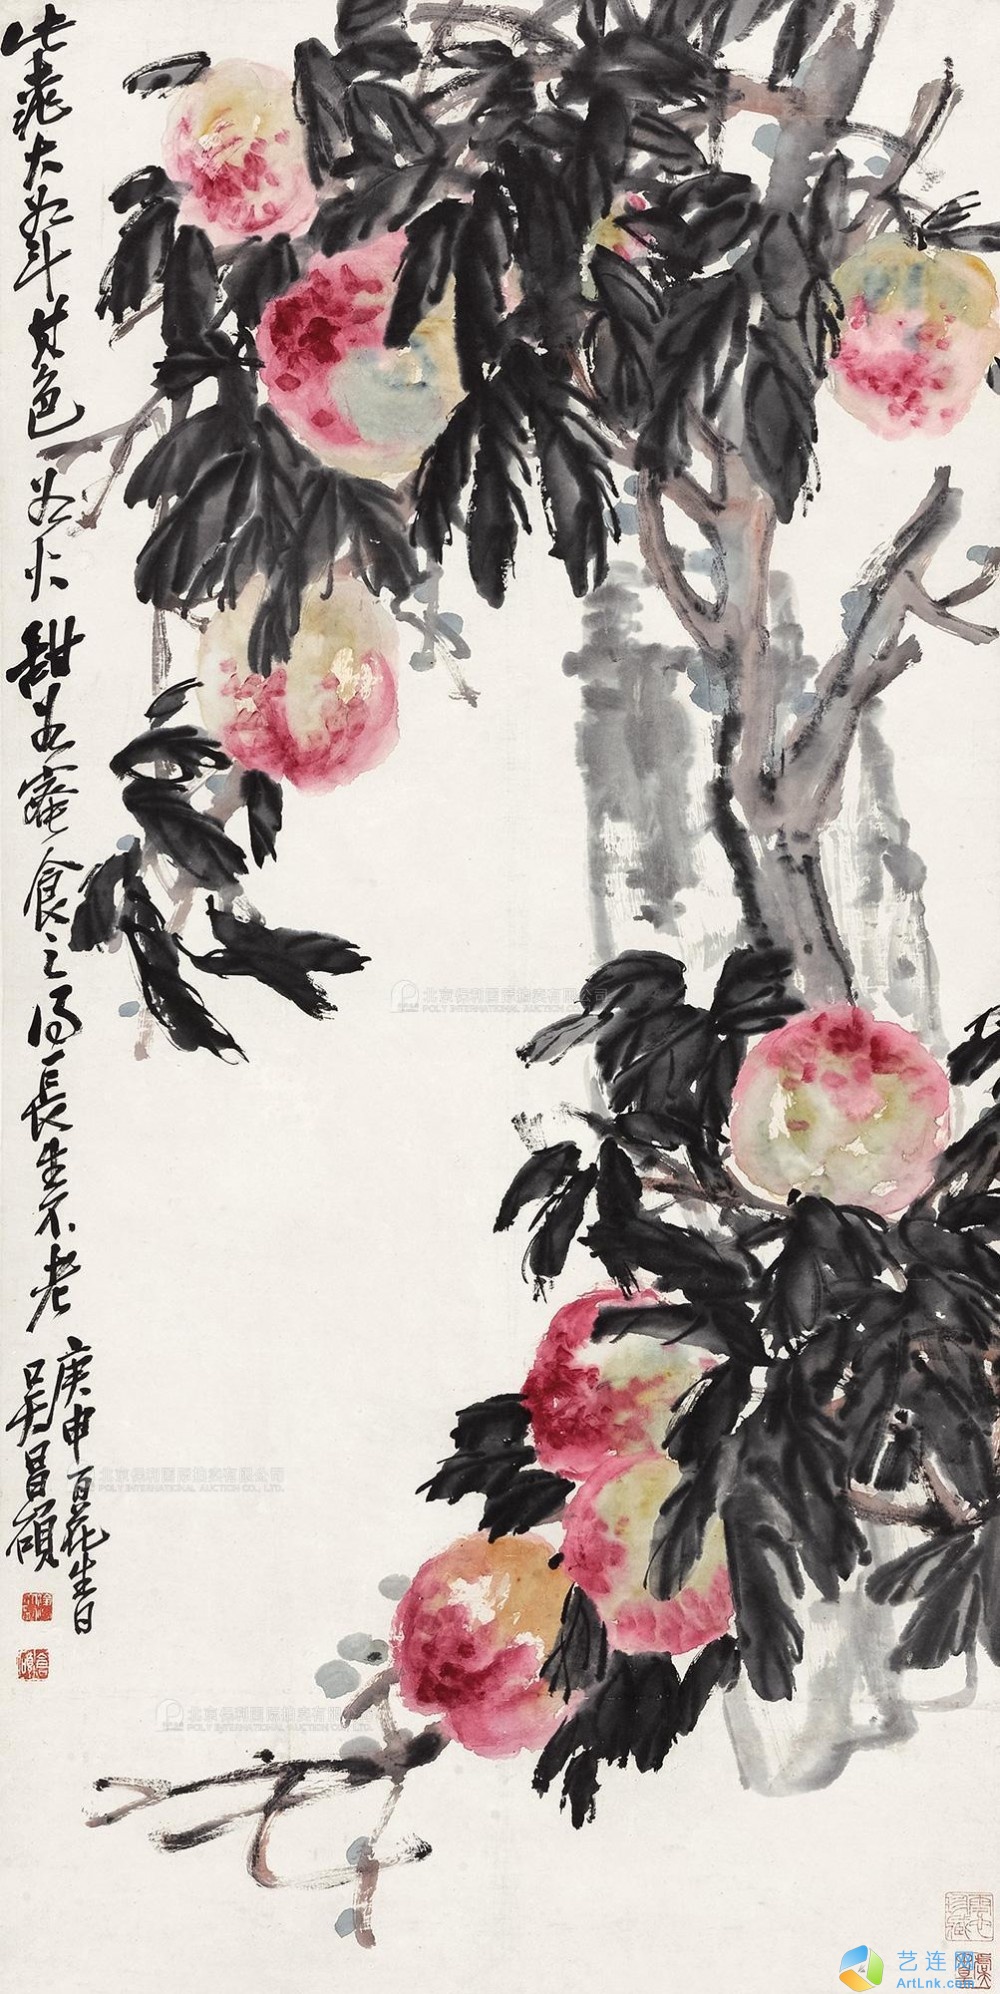 此桃大如斗其色如火甜如蜜食之得長生不老
庚申百花生日
吳昌碩
北京保利国际拍卖有限公司
POLY INTERNATIONAL AUCTION CO., LTD.
北京保利国际拍卖有限公司
POLY INTERNATIONAL AUCTION CO., LTD.
北京保利国际拍卖有限公司
POLY INTERNATIONAL AUCTION CO., LTD.
艺连网
ArtLnk.com